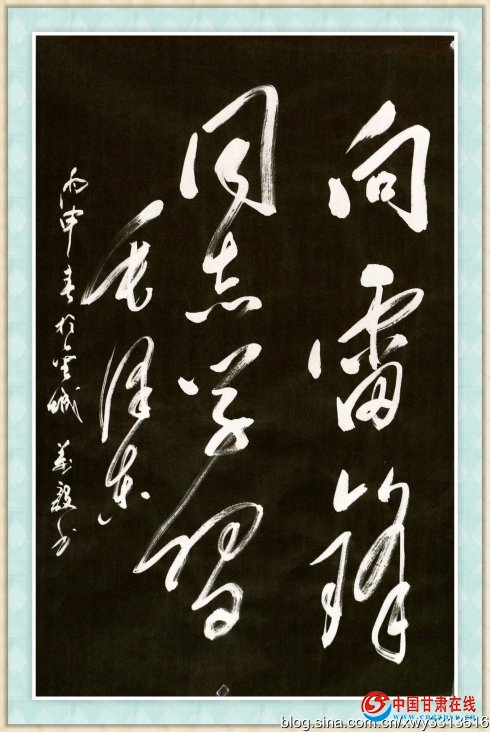 向雷锋
同志学习
毛泽东
丙申春於金城 毅书
中国甘肃在线
blog.sina.com.cn/xwy5313516